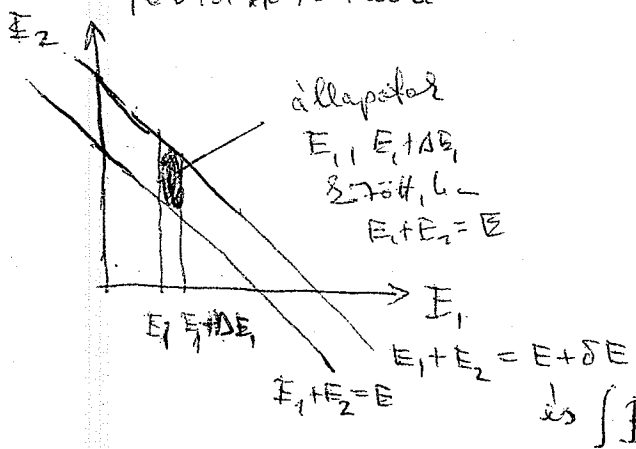 E₂
állapotok
E₁, E₁+ΔE₁
között, ha
E₁+E₂ = E
E₁
E₁ E₁+ΔE₁
E₁+E₂ = E+δE
E₁+E₂ = E
és ∫